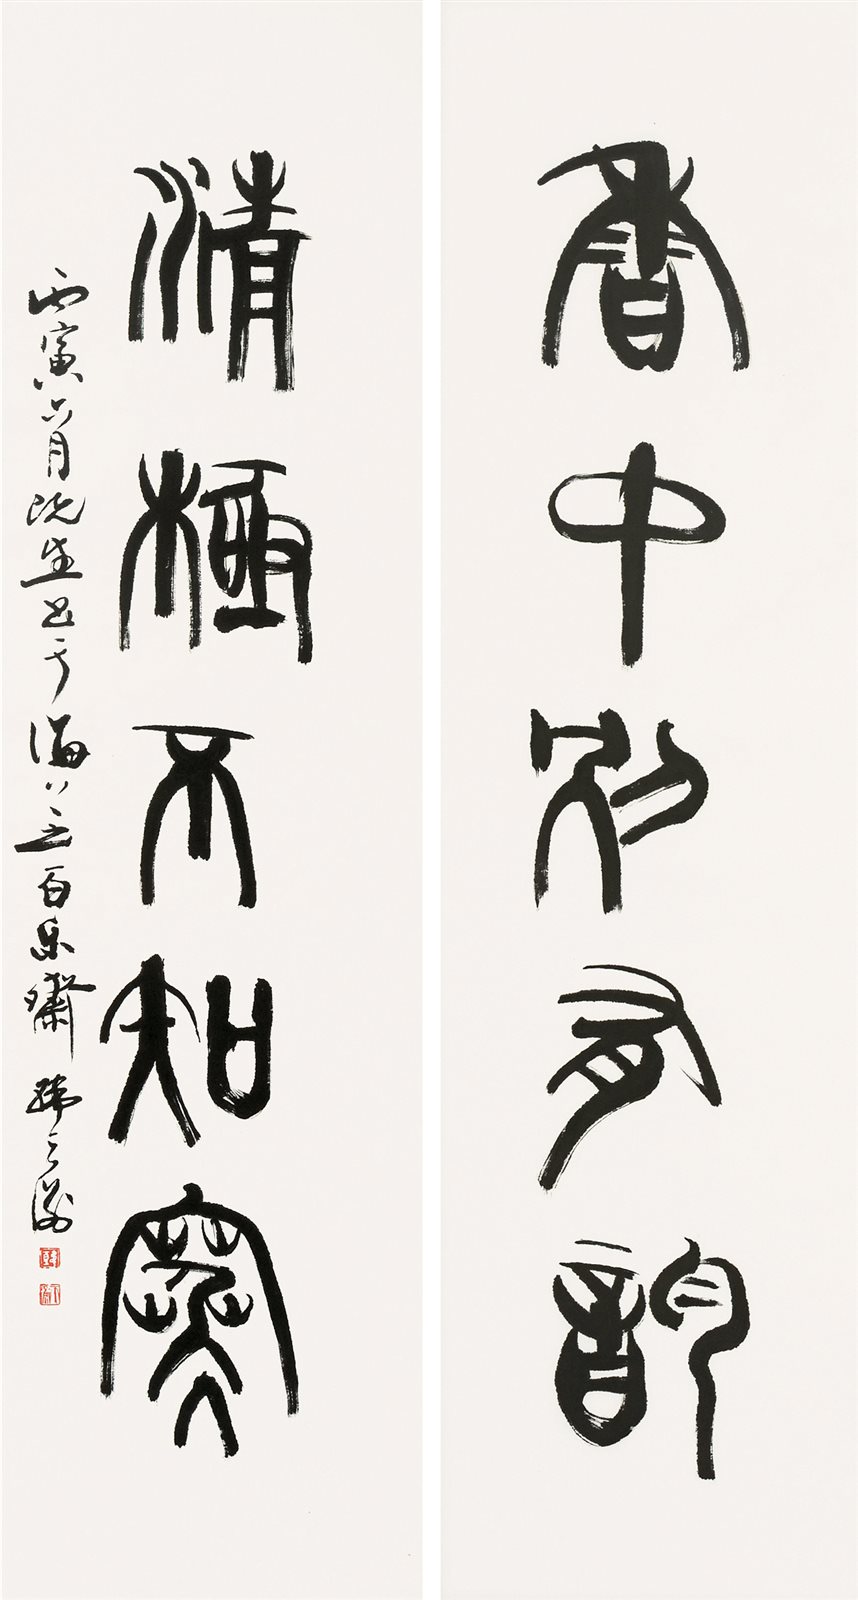 香中別有韵
清極不知寒
丙寅六月既望書于海上之百樂齋 韓天衡